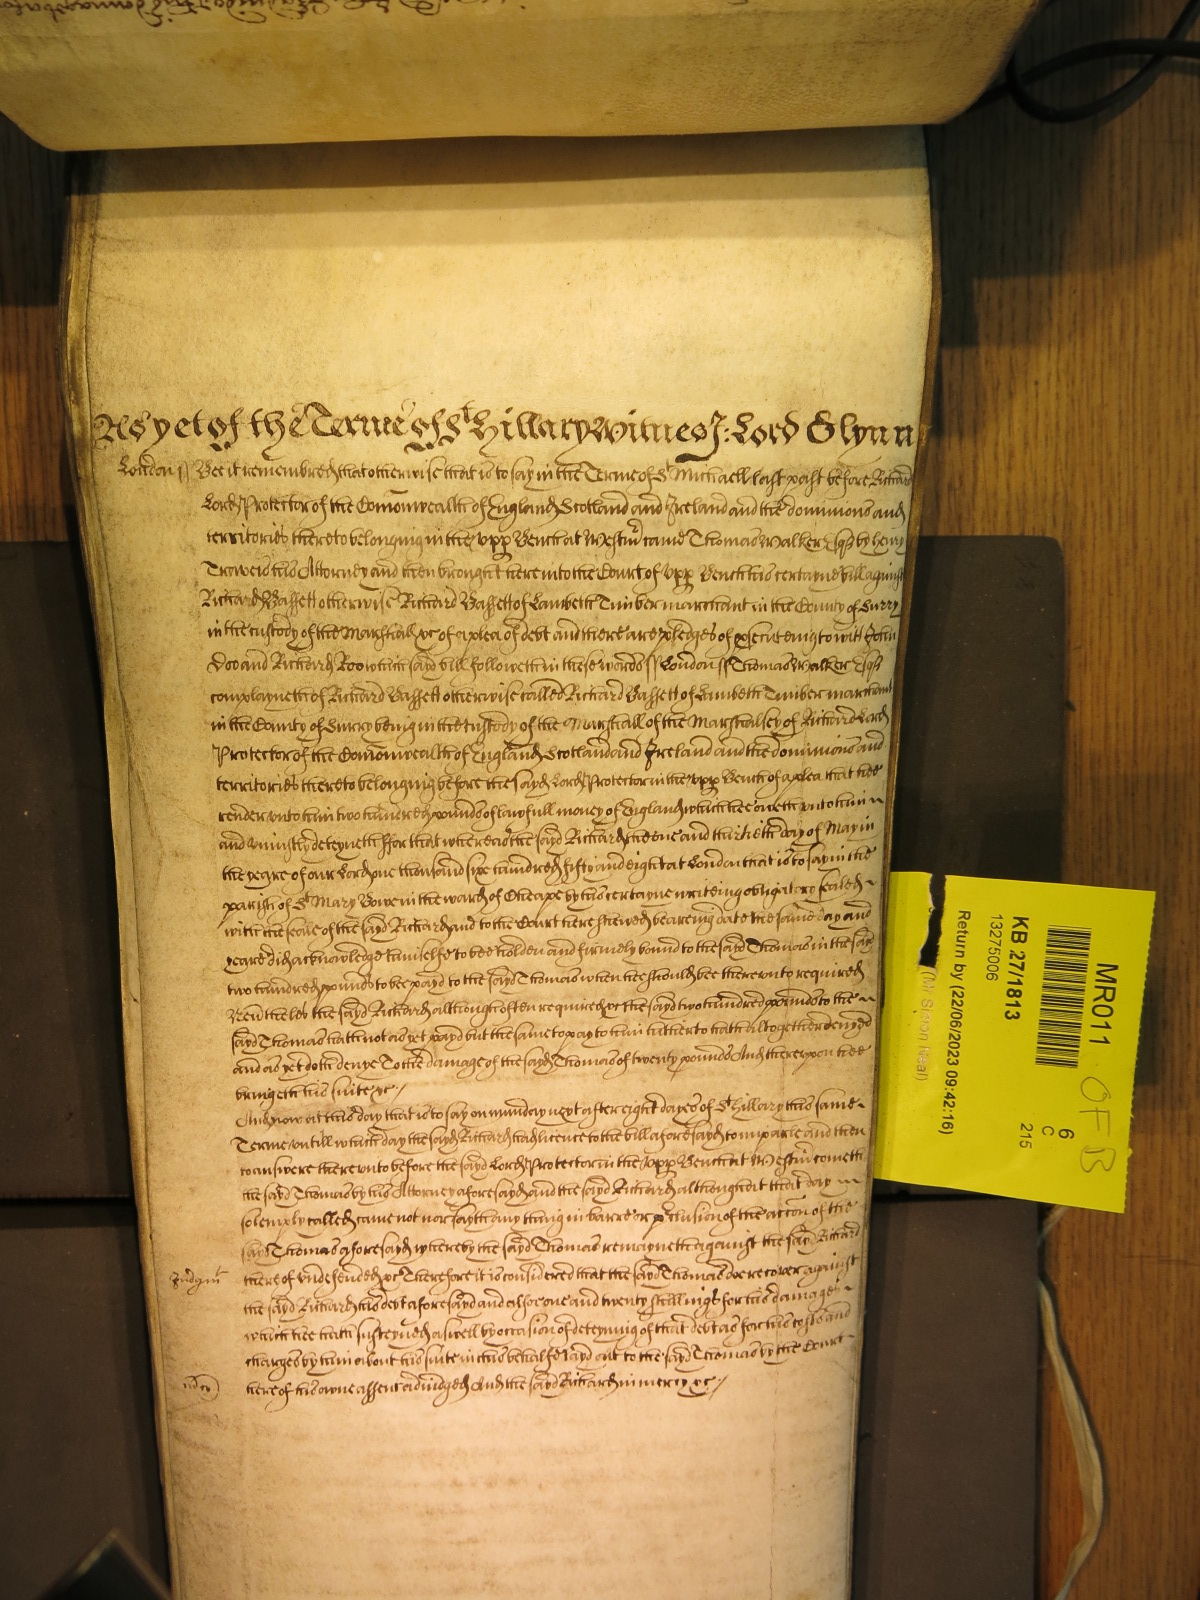 As yet of the Terme of St Hillary Witnes J: Lord Glynn
London ss Bee it remembred that otherwise that is to say in the Terme of St Michaell last past before Richard
Lord Protector of the Comonwealth of England Scotland and Ireland and the dominions and
territories thereto belonging in the upp Bench at Westmr came Thomas Walker Esqr by Henry
Traweis his Attorney and then brought here into the Court of upp Bench his certayne bill against
Richard Bassett otherwise Richard Bassett of Lambeth Timber marchant in the County of Surry
in the custody of the Marshall &c of a plea of debt and there are pledges of psecuteing to witt John
Doo and Richard Roo which sayd bill followeth in these words ss London ss Thomas Walker Esqr
complayneth of Richard Bassett otherwise called Richard Bassett of Lambeth Timber marchant
in the County of Surry being in the custody of the Marshall of the Marshalsey of Richard Lord
Protector of the Comonwealth of England Scotland and Ireland and the dominions and
territories thereto belonging before the sayd Lord Protector in the upp Bench of a plea that hee
render unto him two hundred pounds of lawfull money of England which hee oweth unto him
and uniustly deteyneth ffor that whereas the sayd Richard the one and thirtieth day of May in
the yeare of our Lord one thousand six hundred fifty and eight at London that is to say in the
parish of St Mary Bowe in the ward of Cheape by his certayne writeing obligatory sealed
with the seale of the sayd Richard and to the Court here shewed beareing date the same day and
yeare did acknowledge himselfe to bee holden and firmely bound to the sayd Thomas in the sayd
two hundred pounds to bee payd to the sayd Thomas when hee should bee thereunto required
Nevertheles the sayd Richard although often required &c the sayd two hundred pounds to the
sayd Thomas hath not as yet payd but the same to pay to him hitherto hath altogether denyed
and as yet doth denye To the damage of the sayd Thomas of twenty pounds And thereupon hee
bringeth his suite &c
And now at this day that is to say on munday next after eight dayes of St Hillary this same
Terme untill which day the sayd Richard had licence to the bill aforesayd to imparle and then
to answere thereunto before the sayd Lord Protector in the upp Bench at Westmr cometh
the sayd Thomas by his Attorney aforesayd and the sayd Richard although at that day
solemply called came not nor sayth any thing in barre or pclusion of the accon of the
sayd Thomas aforesayd whereby the sayd Thomas remayneth against the sayd Richard
Judgmt thereof undefended &c Therefore it is considered that the sayd Thomas doe recover against
the sayd Richard his debt aforesayd and alsoe one and twenty shillings for his damages
which hee hath susteyned aswell by occasion of deteyning of that debt as for his costs and
charges by him about his suite in this behalfe layd out to the sayd Thomas by the Court
here of his owne assent adiudged And the sayd Richard in mercy &c
MR011
KB 27/1813
13275006
Return by (22/06/2023 09:42:16)
6
C
215
OFB